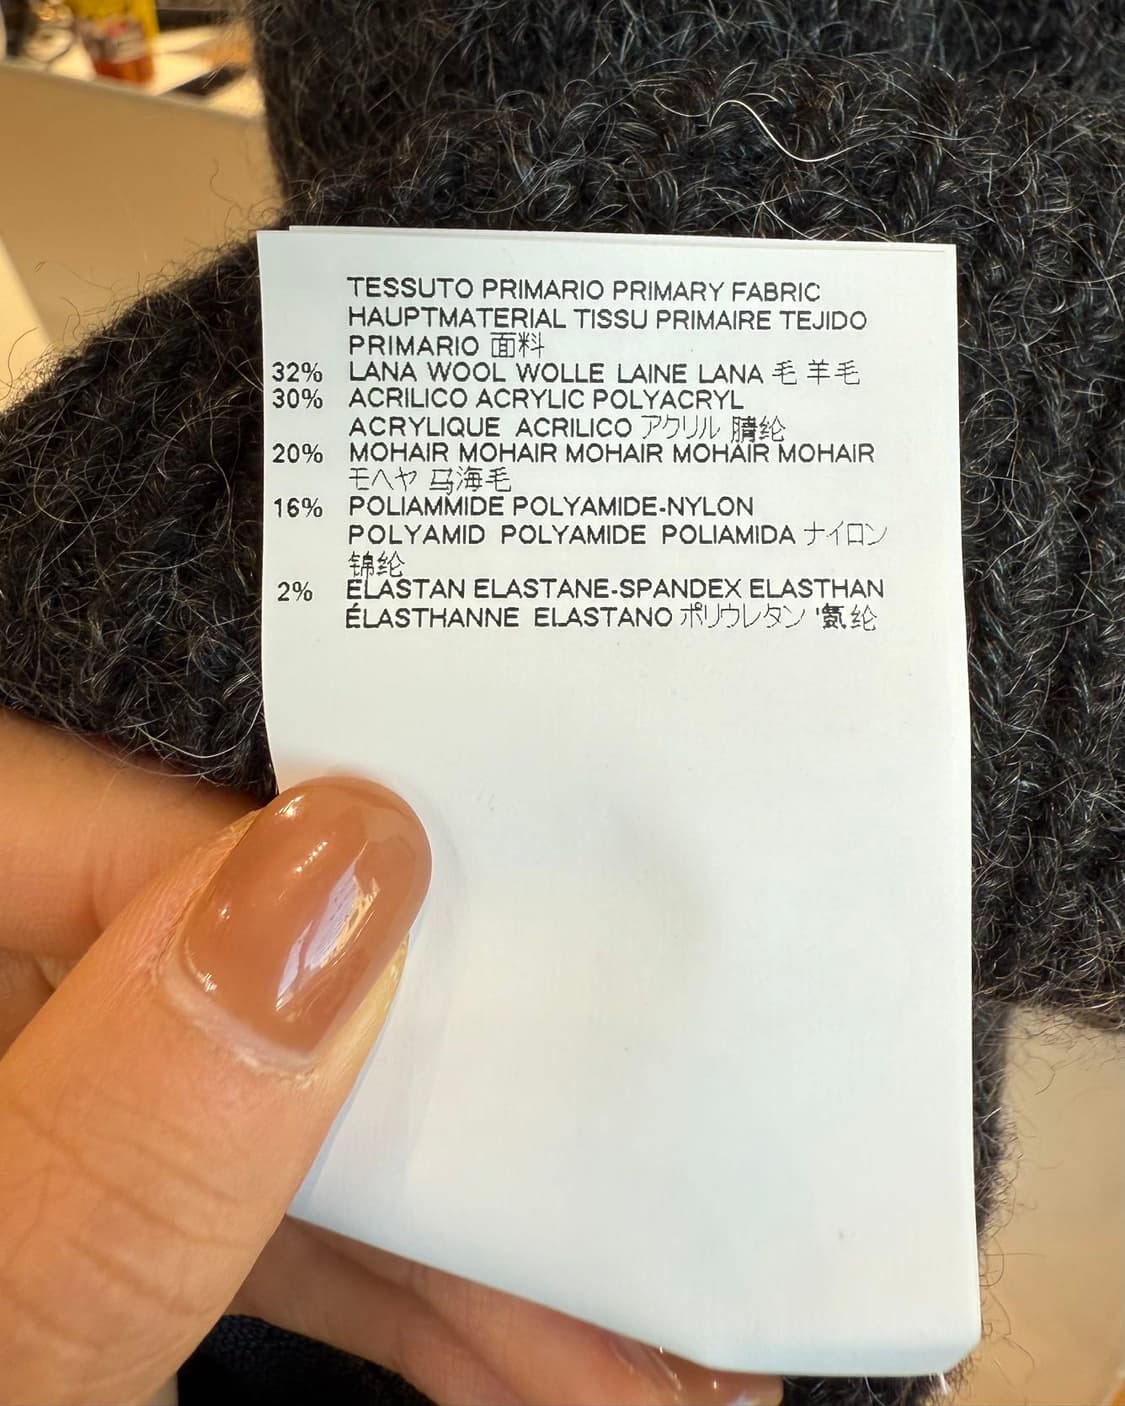 TESSUTO PRIMARIO PRIMARY FABRIC
HAUPTMATERIAL TISSU PRIMAIRE TEJIDO
PRIMARIO 面料
32% LANA WOOL WOLLE LAINE LANA 毛 羊毛
30% ACRILICO ACRYLIC POLYACRYL
ACRYLIQUE ACRILICO アクリル 腈纶
20% MOHAIR MOHAIR MOHAIR MOHAIR MOHAIR
モヘヤ 马海毛
16% POLIAMMIDE POLYAMIDE-NYLON
POLYAMID POLYAMIDE POLIAMIDA ナイロン
锦纶
2% ELASTAN ELASTANE-SPANDEX ELASTHAN
ÉLASTHANNE ELASTANO ポリウレタン '氨纶